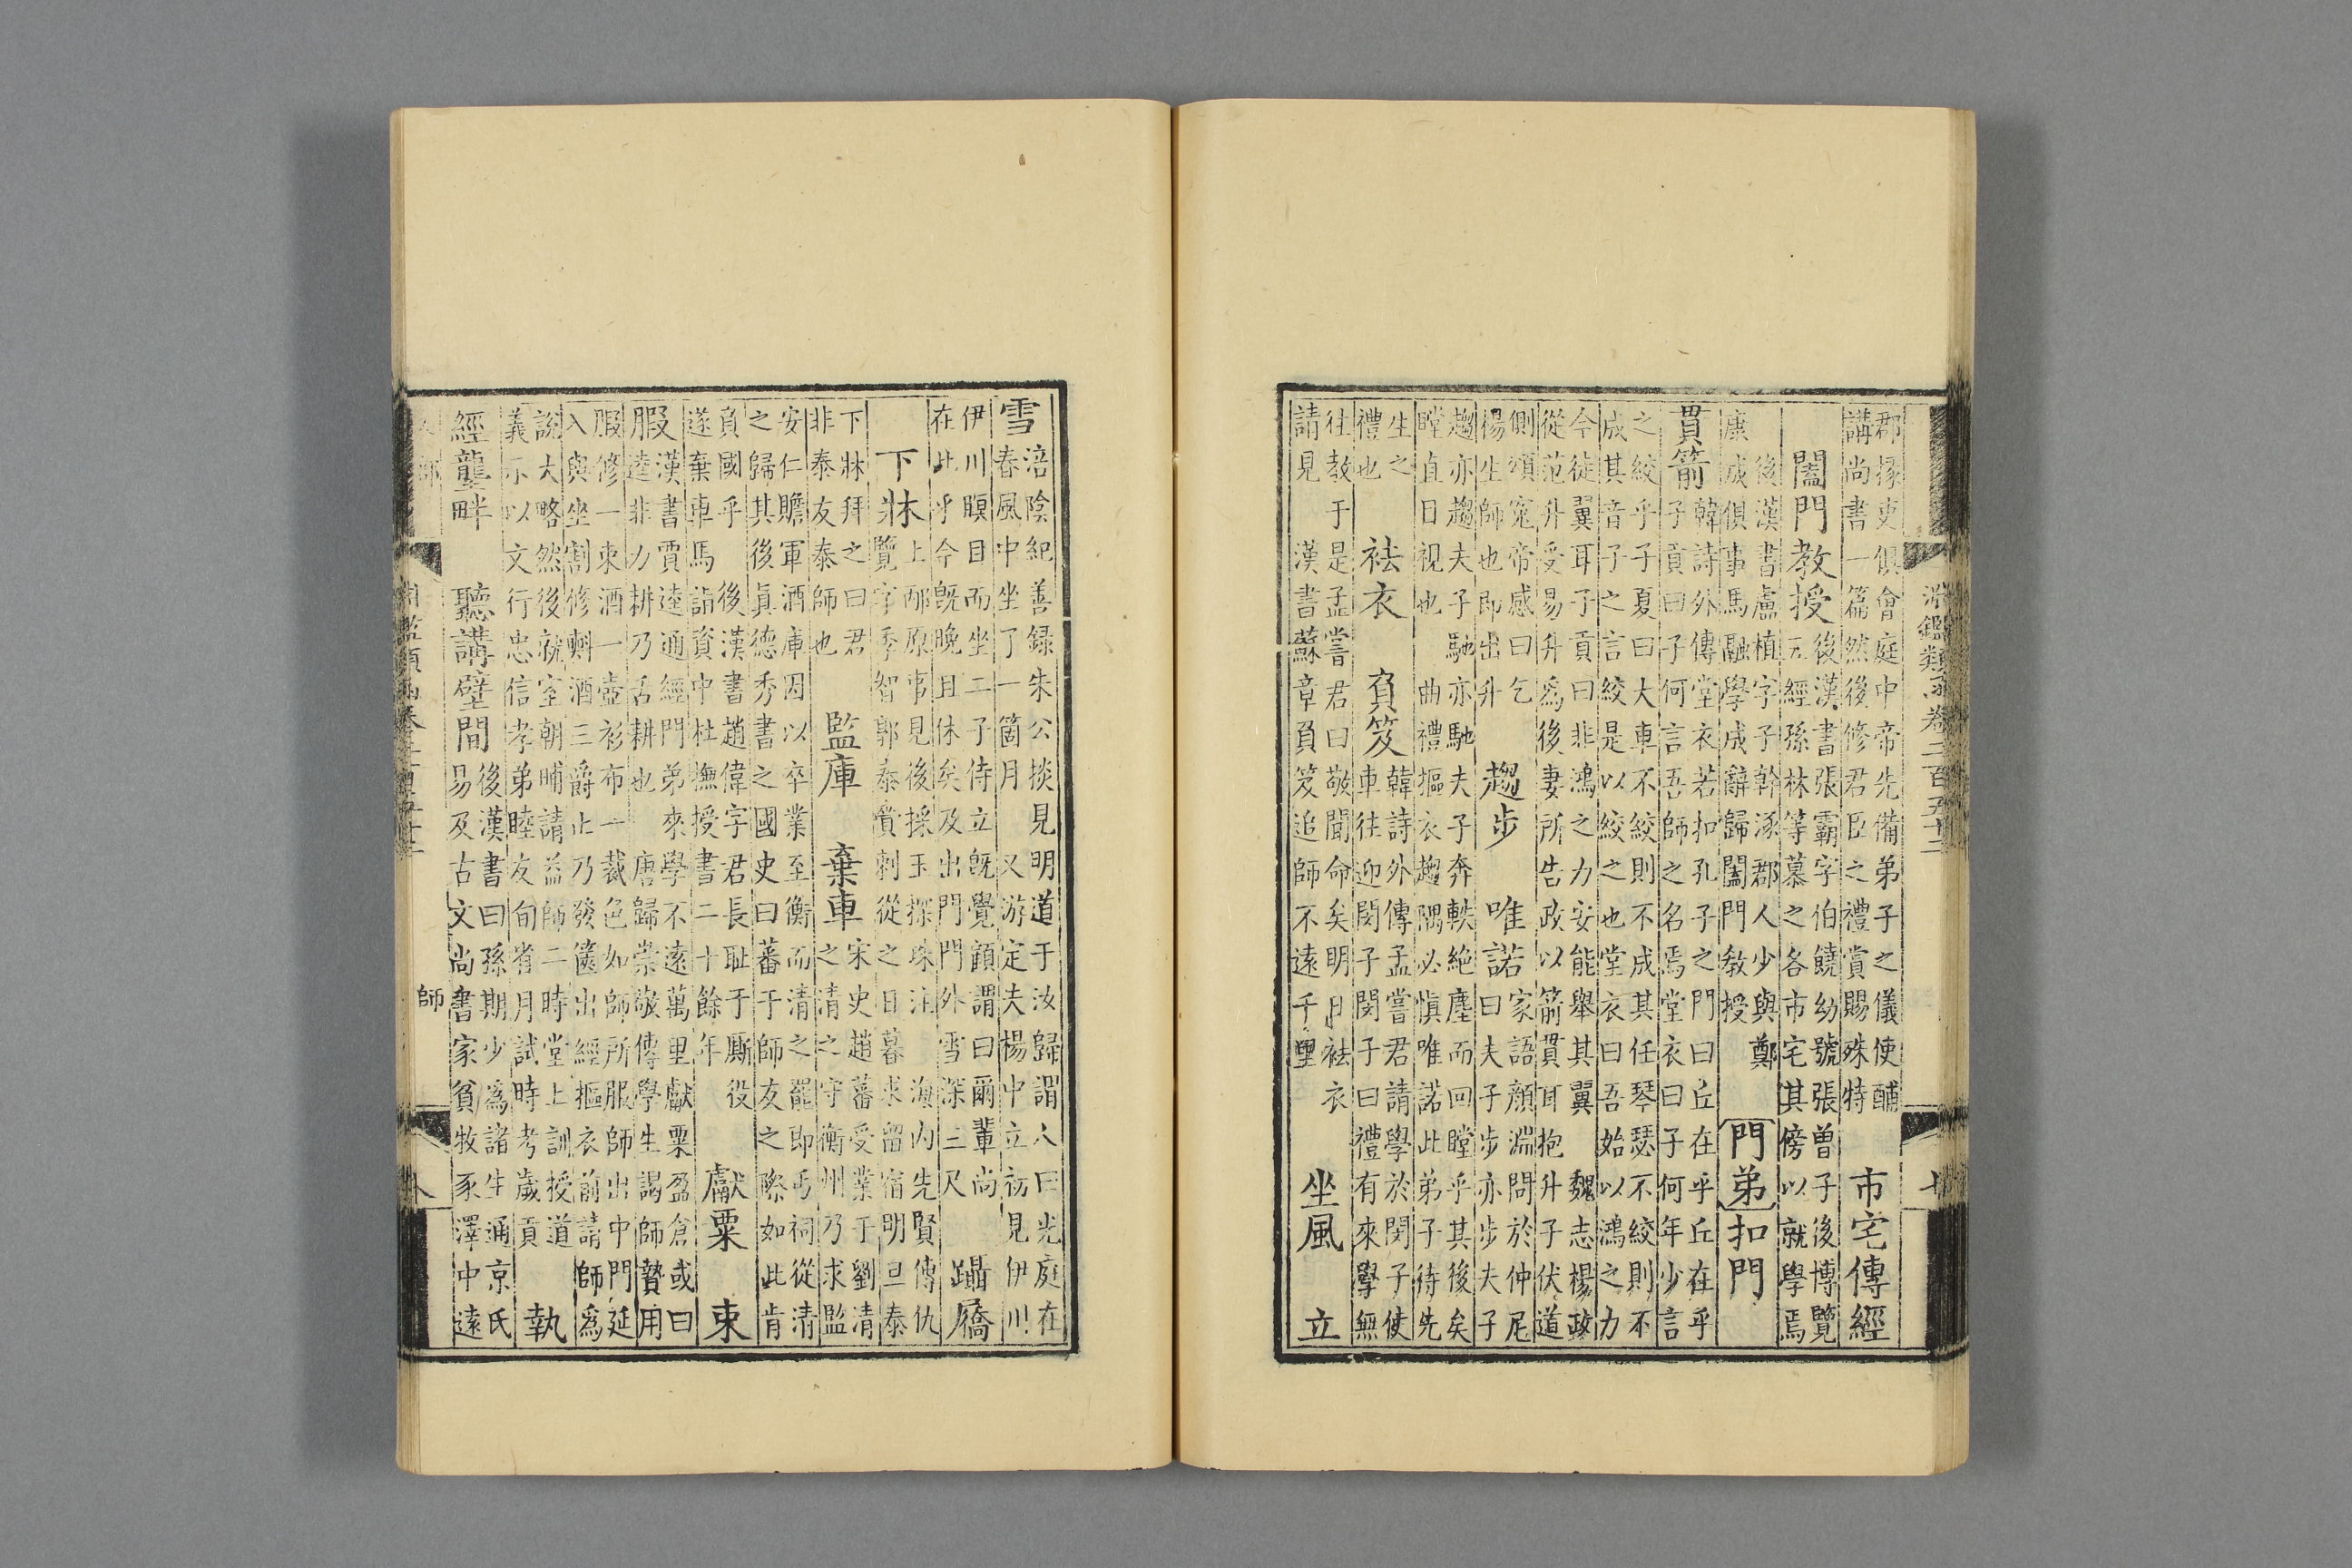 淵鑑類函卷二百五十二 七
郡掾吏俱會庭中帝先備弟子之儀使酺
講尚書一篇然後修君臣之禮賞賜殊特
市宅傳經
闔門教授
後漢書張霸字伯饒幼號張曾子後博覽
五經孫林等慕之各市宅其傍以就學焉
後漢書盧植字子幹涿郡人少與鄭
康成俱事馬融學成辭歸闔門教授
門弟 扣門
貫箭
韓詩外傳堂衣若扣孔子之門曰丘在乎丘在乎
子貢曰子何言吾師之名焉堂衣曰子何年少言
之絞乎子夏曰大車不絞則不成其任琴瑟不絞則不
成其音子之言絞是以絞之也堂衣曰吾始以鴻之力
今徒翼耳子貢曰非鴻之力安能舉其翼 魏志楊政
從范升受易升爲後妻所告政以箭貫耳抱升子伏道
側頌寃帝感曰乞
楊生師也即出升
趨步 唯諾
家語顏淵問於仲尼
曰夫子步亦步夫子
趨亦趨夫子馳亦馳夫子奔軼絶塵而回瞠乎其後矣
瞠直目視也 曲禮摳衣趨隅必慎唯諾此弟子待先
生之
禮也
祛衣 負笈
韓詩外傳孟嘗君請學於閔子使
車往迎閔子閔子曰禮有來學無
往教于是孟嘗君曰敬聞命矣明日祛衣
請見 漢書蘇章負笈追師不遠千里
坐風 立
雪
涪陰紀善録朱公掞見明道于汝歸謂人曰光庭在
春風中坐了一箇月 又游定夫楊中立初見伊川
伊川瞑目而坐二子侍立旣覺顧謂曰爾輩尚
在此乎今旣晚且休矣及出門門外雪深三尺
躡屩
下牀
上邴原事見後採玉探珠注 海内先賢傳仇
覽字季智郭泰賫刺從之日暮求留宿明旦泰
下牀拜之曰君
非泰友泰師也
監庫 棄車
宋史趙蕃受業于劉清
之清之守衡州乃求監
安仁贍軍酒庫因以卒業至衡而清之罷即丐祠從清
之歸其後眞德秀書之國史曰蕃于師友之際如此肯
負國乎 後漢書趙偉字君長耻于厮役
遂棄車馬詣資中杜撫授書二十餘年
獻粟 束
腶
漢書賈逵通經門弟來學不遠萬里獻粟盈倉或曰
逵非力耕乃舌耕也 唐歸崇敬傳學生謁師贄用
腶修一束酒一壺衫布一裁色如師所服師出中門延
入與坐割修斟酒三爵止乃發篋出經摳衣前請師爲
說大略然後就室朝晡請益師二時堂上訓授道
義示以文行忠信孝弟睦友旬省月試時考歲貢
執
經壟畔 聽講壁間
後漢書曰孫期少爲諸生通京氏
易及古文尚書家貧牧豕澤中遠
師 八